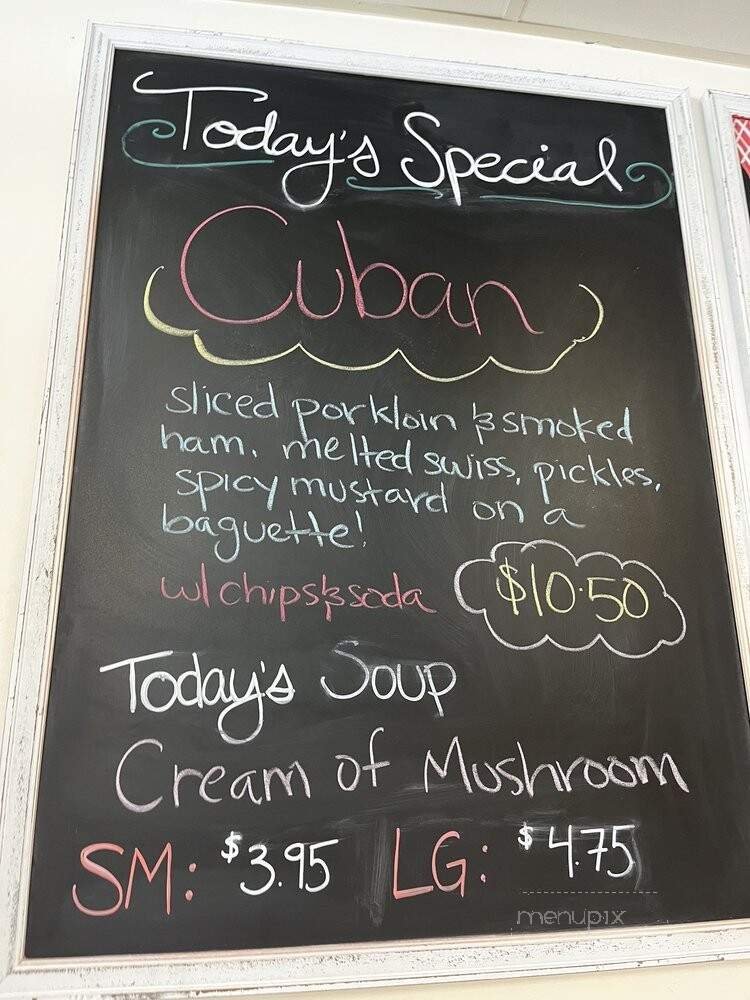 Today's Special
Cuban
sliced porkloin & smoked
ham, melted swiss, pickles,
spicy mustard on a
baguette!
w/ chips & soda $10.50
Today's Soup
Cream of Mushroom
SM: $3.95 LG: $4.75
menupix